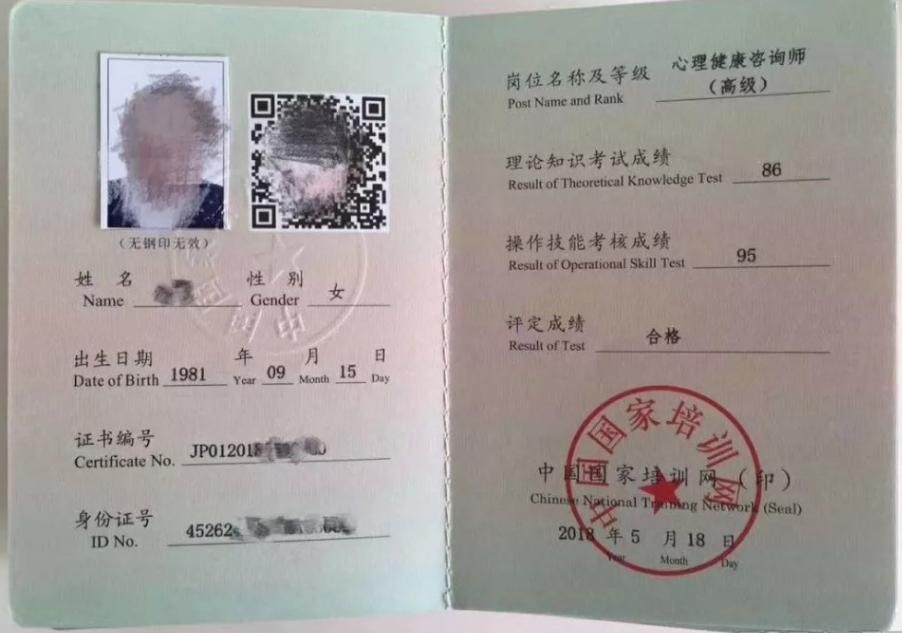 （无钢印无效）
姓 名
Name
性 别
Gender 女
出生日期 年 月 日
Date of Birth 1981 Year 09 Month 15 Day
证书编号
Certificate No. JP012015
身份证号
ID No. 45262
岗位名称及等级 心理健康咨询师
Post Name and Rank （高级）
理论知识考试成绩
Result of Theoretical Knowledge Test 86
操作技能考核成绩
Result of Operational Skill Test 95
评定成绩
Result of Test 合格
中国国家培训网
中国国家培训网（印）
Chinese National Training Network (Seal)
2018 年 5 月 18 日
Year Month Day